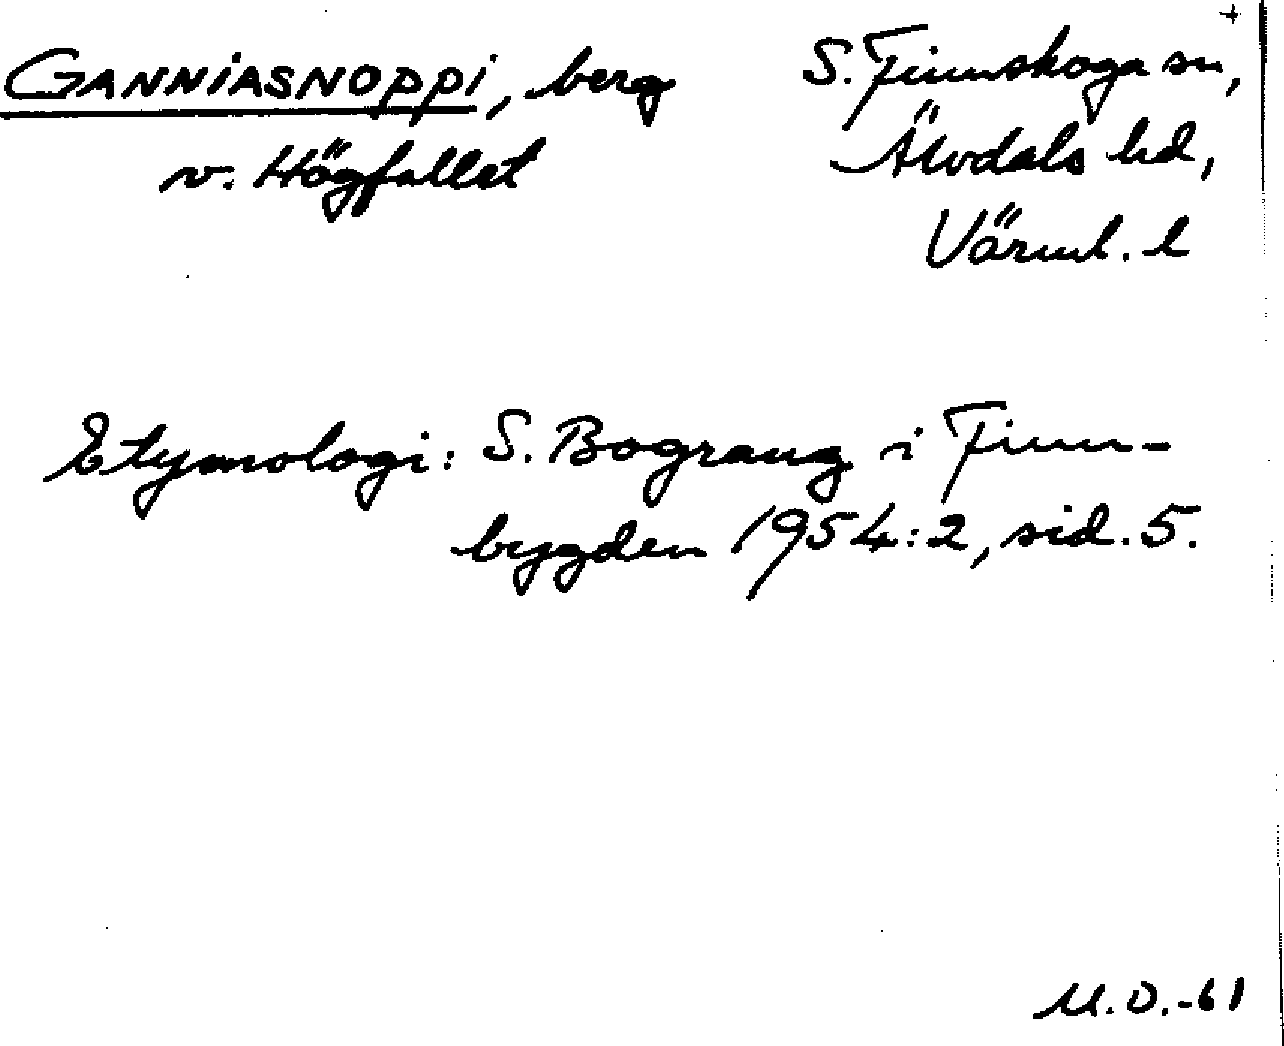 +
GANNIASNOPPI, berg
v. Högfallet
S. Finnskoga sn,
Älvdals hd,
Värml. l
Etymologi: S. Bograng i Finn-
bygden 1954:2, sid. 5.
M.O.-61